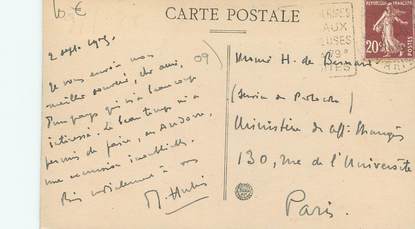 10 €
CARTE POSTALE
AUX
20c
2 sept.
09
Je vous envoie mon
meilleur souvenir, cher ami,
qui m'a beaucoup
intéressé. Le beau temps m'a
permis de faire, en Andorre,
une excursion inoubliable.
Bien cordialement à vous
H. de
(Service du Protocole)
Ministère des aff. Étrangères
130, rue de l'Université
Paris.